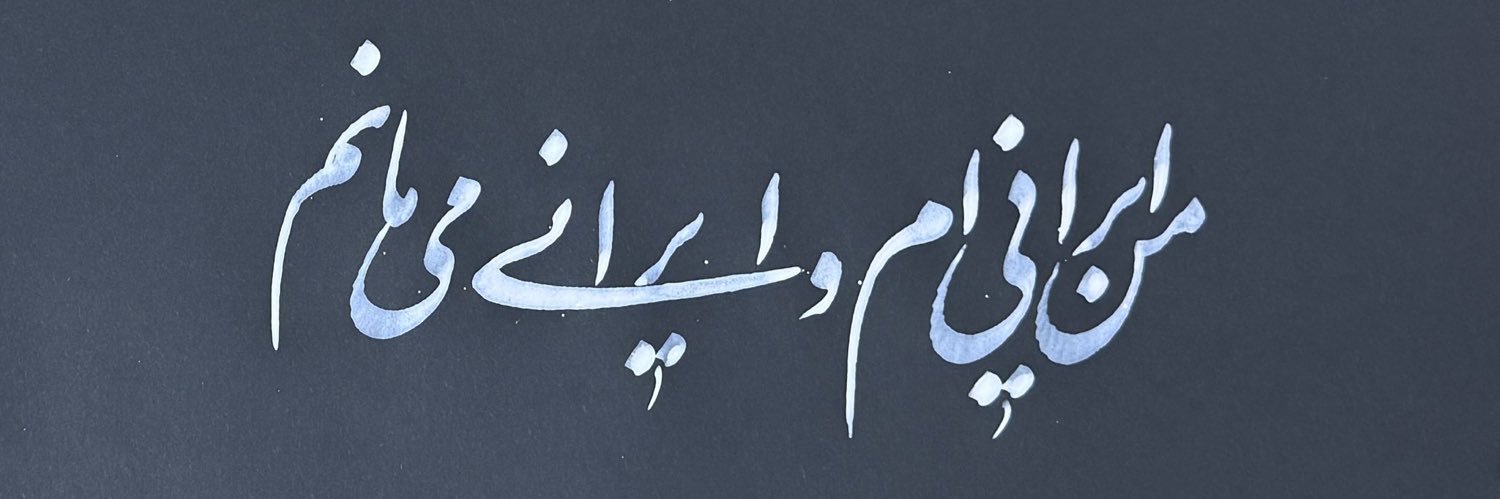 من ایرانی ام و ایرانی می مانم